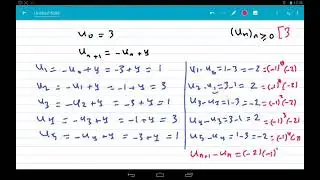 u₀ = 3
(uₙ)ₙ≥₀ [3
uₙ₊₁ = -uₙ + 4
u₁ = -u₀ + 4 = -3 + 4 = 1
u₂ = -u₁ + 4 = -1 + 4 = 3
u₃ = -u₂ + 4 = -3 + 4 = 1
u₄ = -u₃ + 4 = -1 + 4 = 3
u₅ = -u₄ + 4 = -3 + 4 = 1
u₁ - u₀ = 1 - 3 = -2 = (-1)⁰(-2)
u₂ - u₁ = 3 - 1 = 2 = (-1)¹(-2)
u₃ - u₂ = 1 - 3 = -2 = (-1)²(-2)
u₄ - u₃ = 3 - 1 = 2 = (-1)³(-2)
u₅ - u₄ = 1 - 3 = -2 = (-1)⁴(-2)
uₙ₊₁ - uₙ = (-2)(-1)